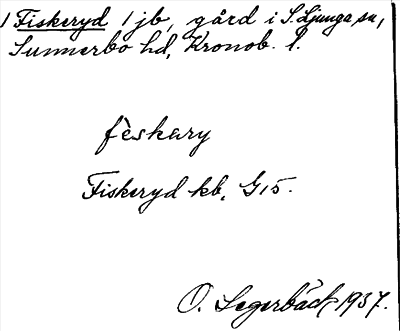 1 Fiskeryd 1 jb, gård i S. Ljunga sn,
Sunnerbo hd, Kronob. l.
fèskary
Fiskeryd kb, G15.
O. Segerbäck 1937.